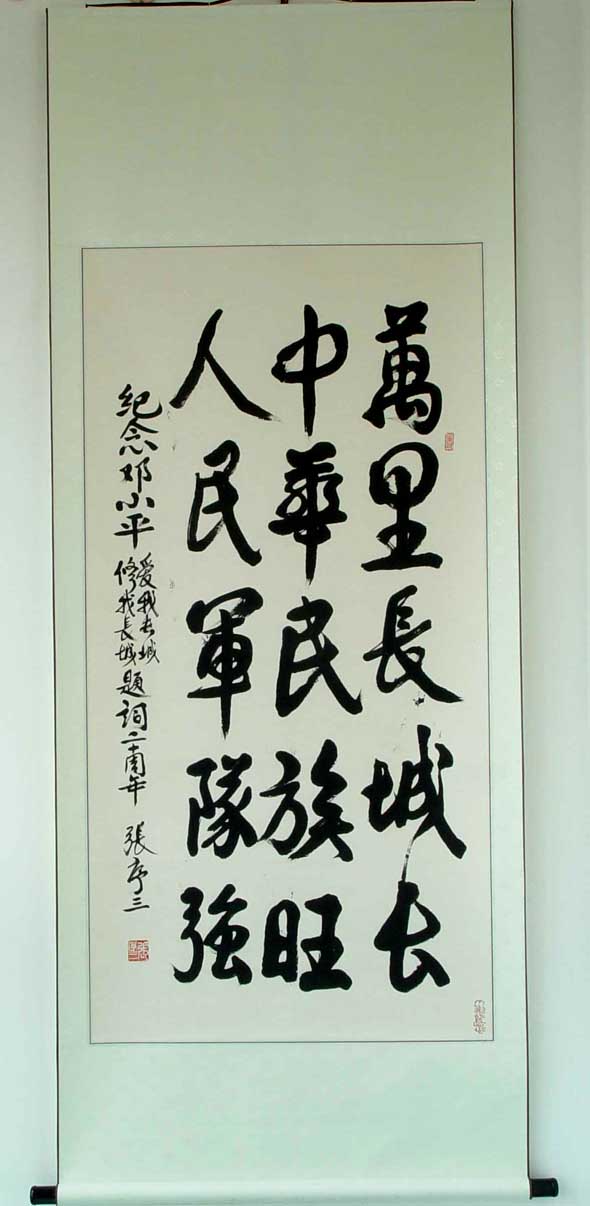 萬里長城长
中華民族旺
人民軍隊強
纪念邓小平
爱我长城
修我長城
題詞二十周年 張序三